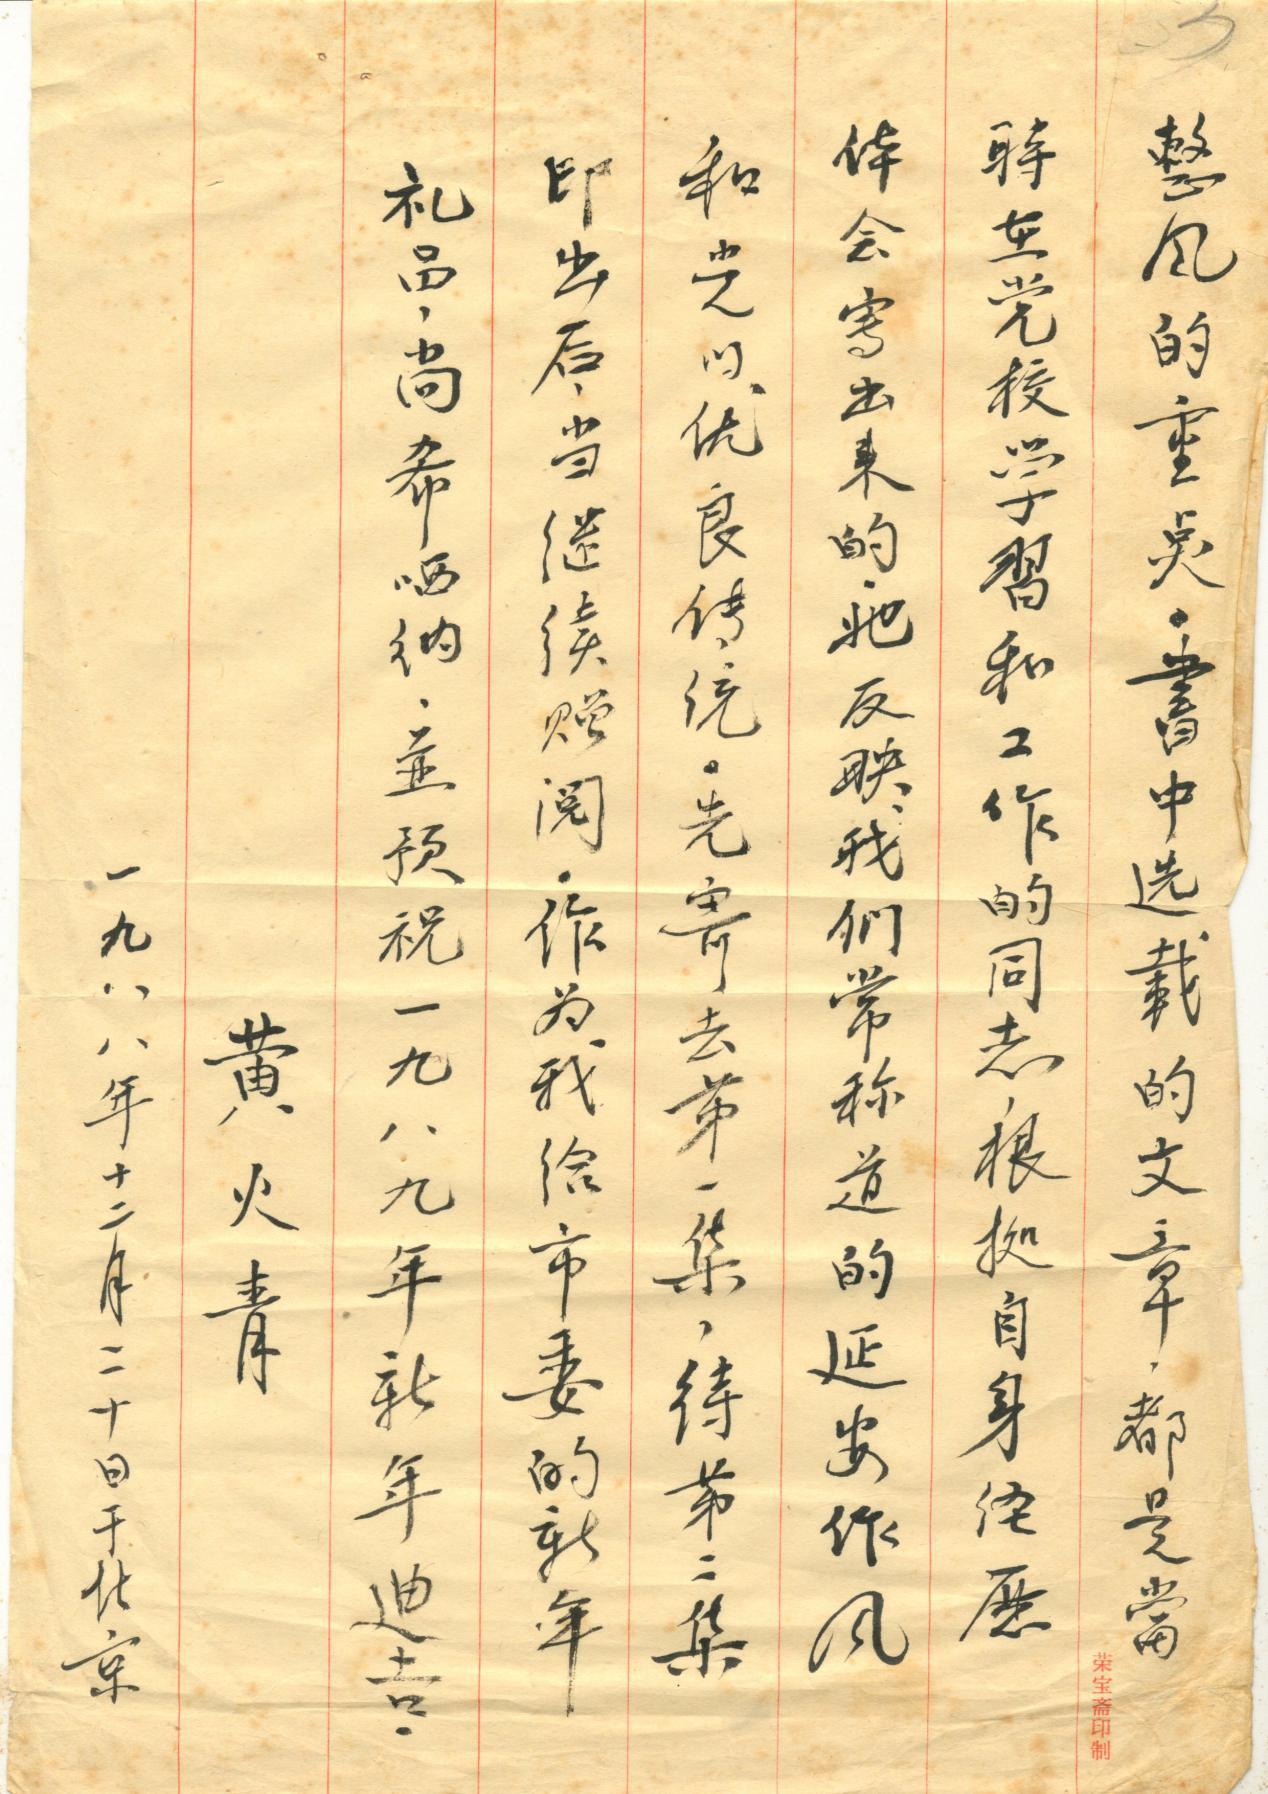 整风的重点。書中选载的文章，都是當
時在党校学習和工作的同志，根据自身经歷
体会写出来的。她反映我们常称道的延安作风
和党的优良传统。先寄去第一集，待第二集
印出后，当继续赠阅。作为我给市委的新年
礼品，尚希哂纳，並预祝一九八九年新年迪吉。
黄火青
一九八八年十二月二十日于北京
荣宝斋印制